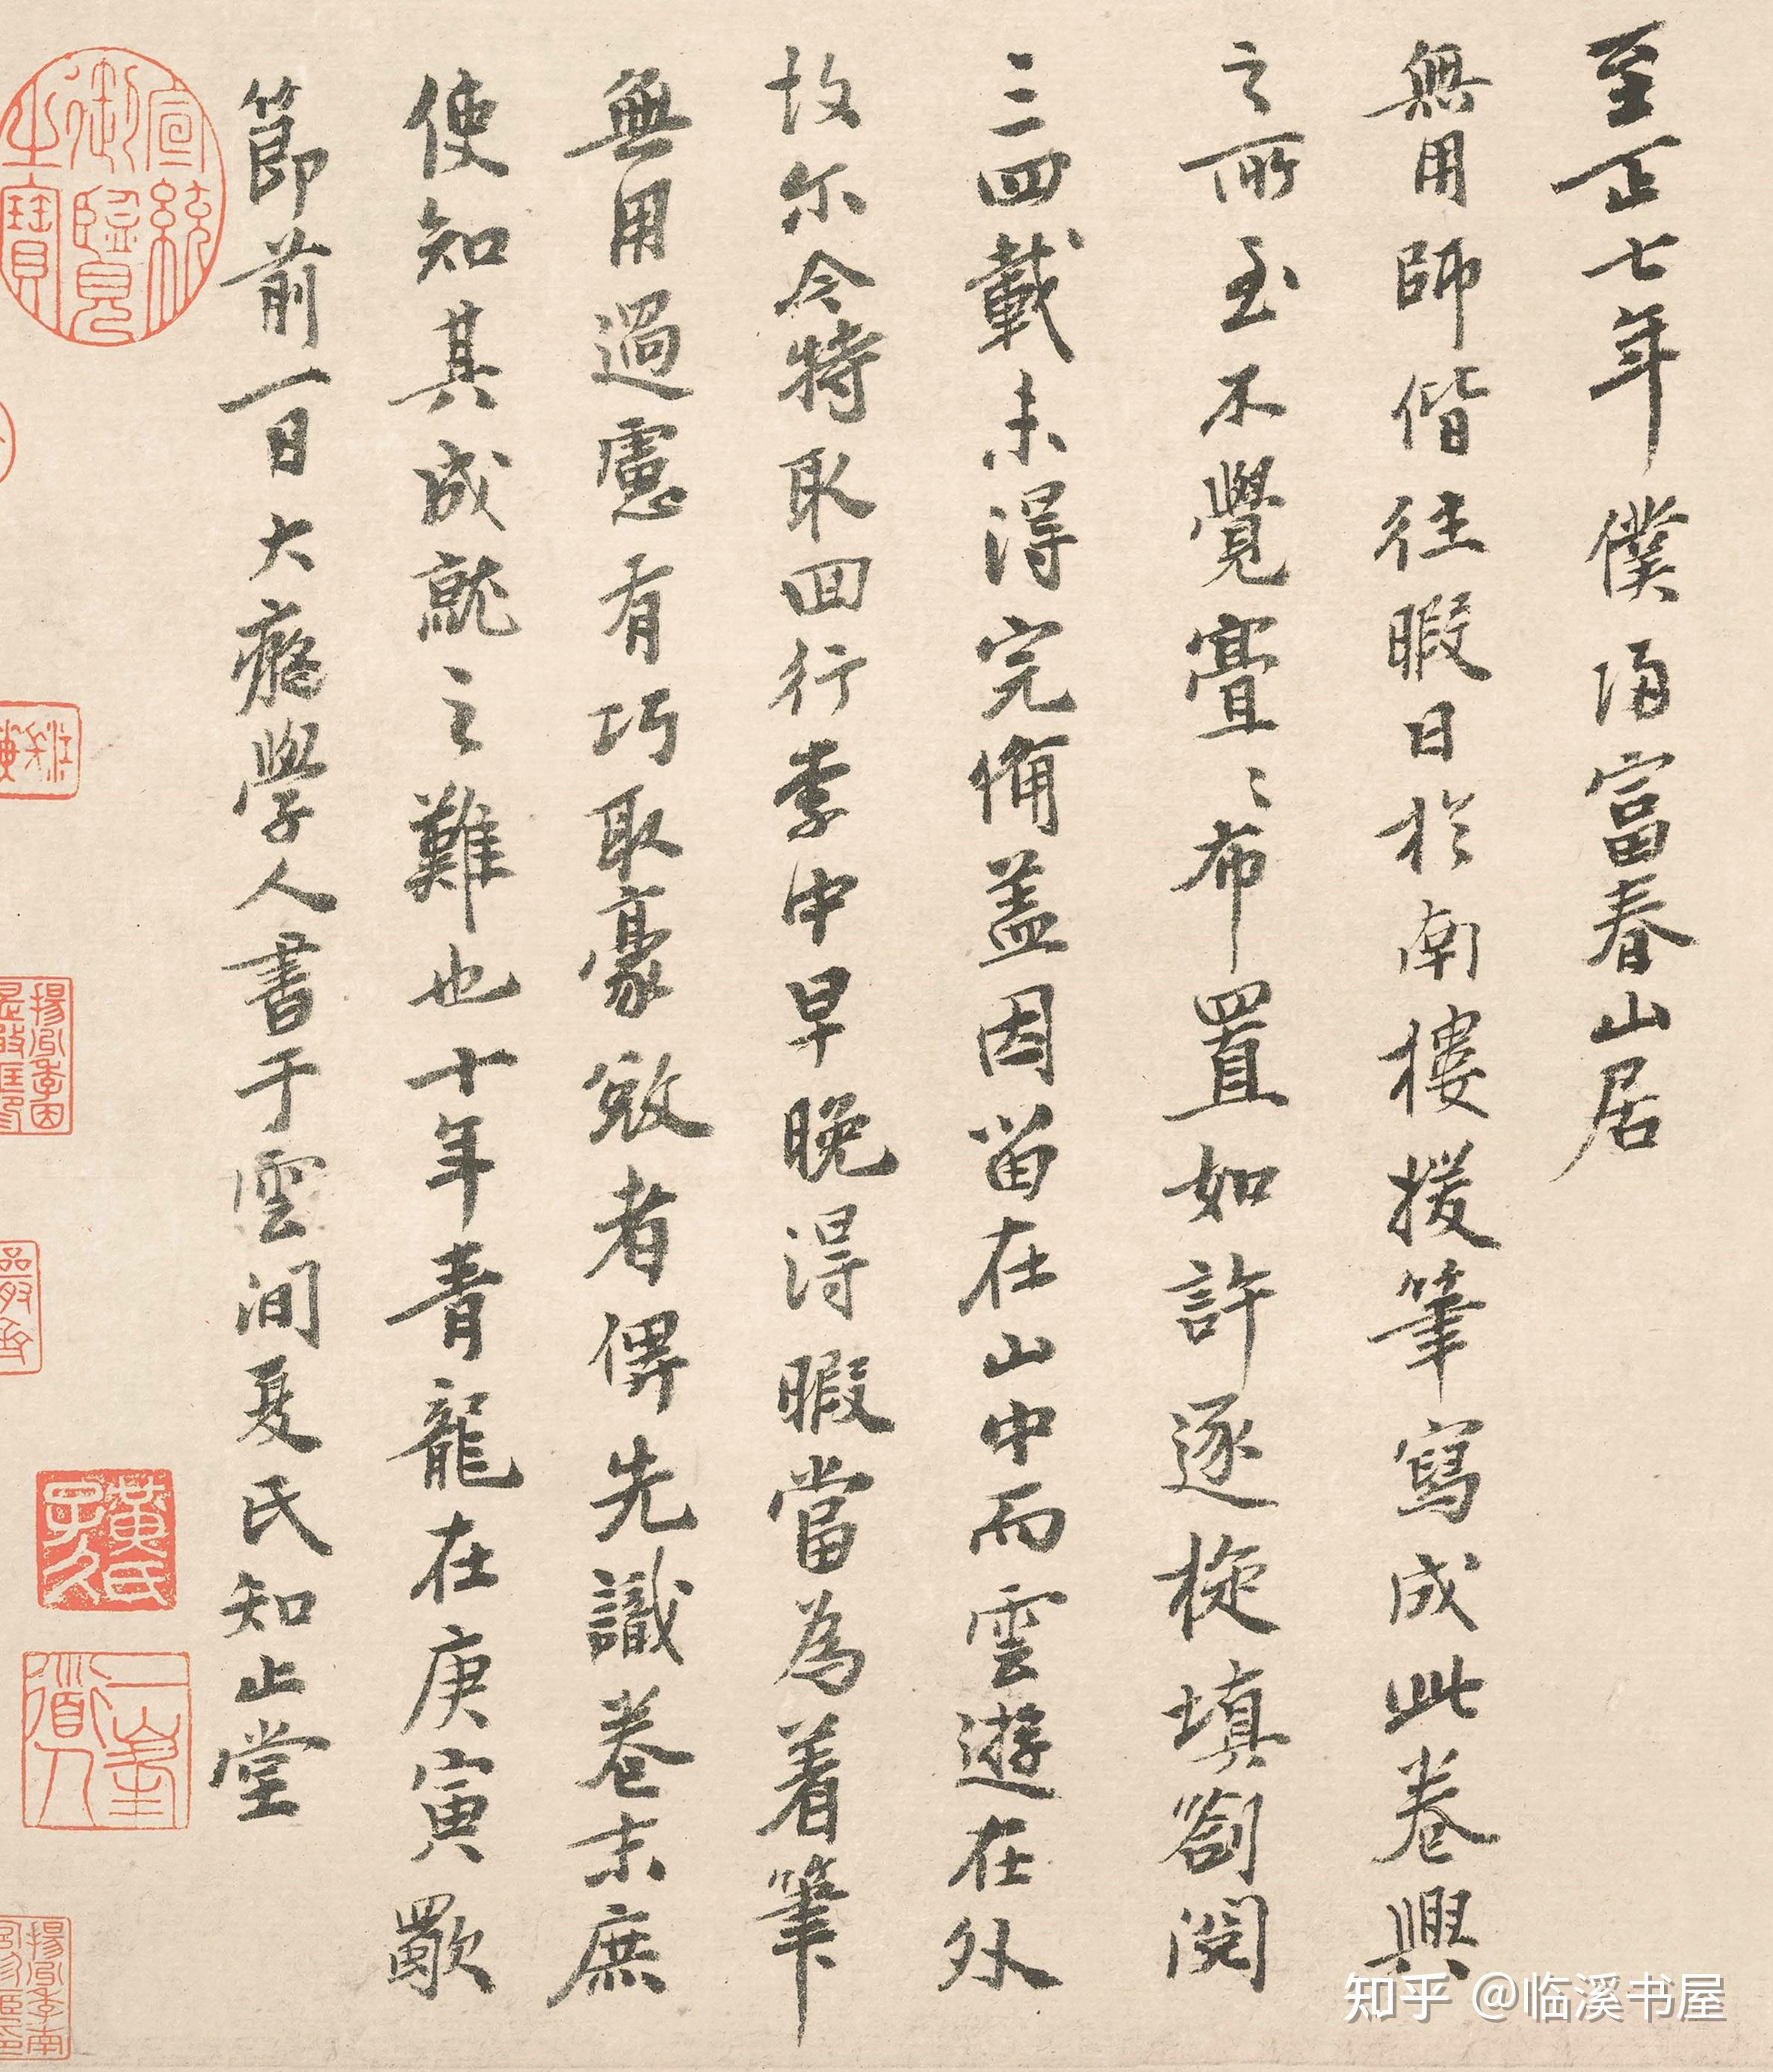 至正七年僕歸富春山居
無用師偕往暇日於南樓援筆寫成此卷興
之所至不覺亹〻布置如許逐旋填劄閱
三四載未得完備盖因留在山中而雲遊在外
故尔今特取回行李中早晚得暇當為着筆
無用過慮有巧取豪敓者俾先識卷末庶
使知其成就之難也十年青龍在庚寅歜
節前一日大癡學人書于雲間夏氏知止堂
宣統御覽之寶
黃氏子久
一峯道人
知乎 @临溪书屋